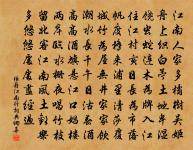 江南人家多橘樹吳姬
舟上織白苧土地卑濕
饒蟲蛇連木為牌入江
住江村亥日長為市落
帆度橋來浦里清莎覆
城竹為屋無井家家飲
潮水長干午日沽春酒
高高酒旗懸江口娼樓
兩岸臨水柵夜唱竹枝
留北客江南風土歡樂
多悠悠處處盡經過
張籍江南行